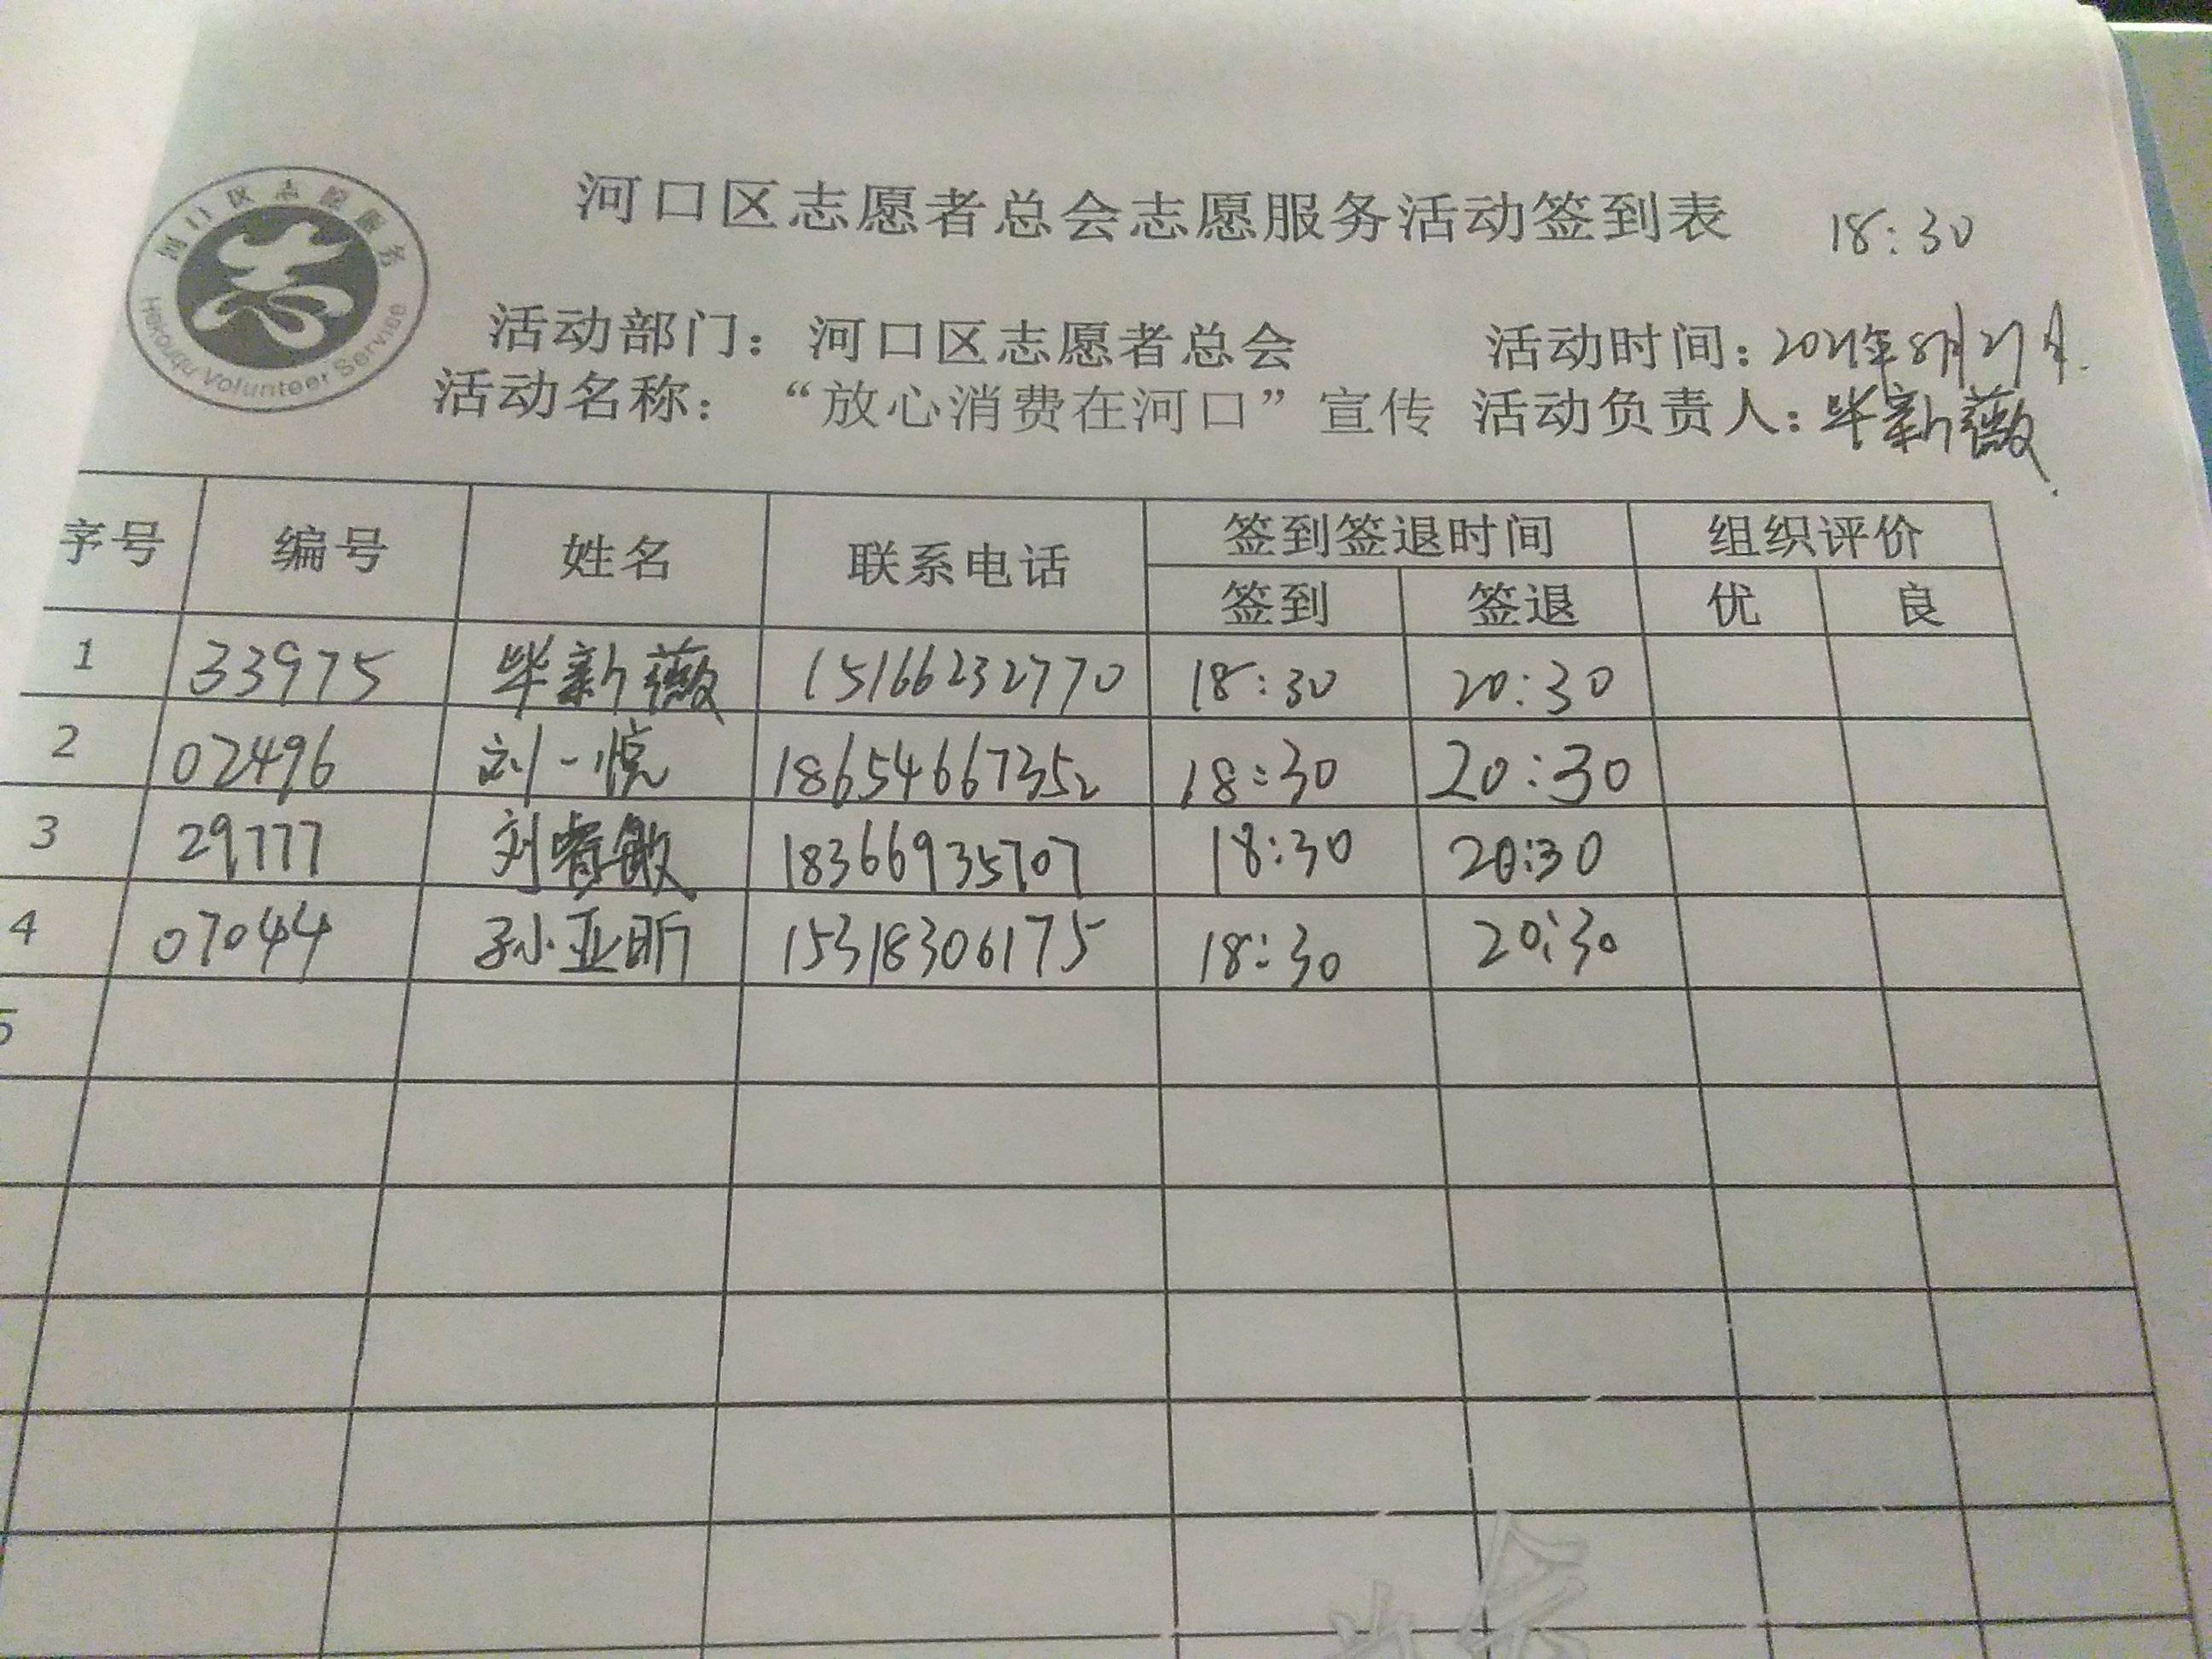 河口区志愿者总会志愿服务活动签到表 18:30
河口区志愿服务
Hekouqu Volunteer Service
活动部门：河口区志愿者总会 活动时间：2021年8月21日
活动名称：“放心消费在河口”宣传 活动负责人：毕新薇
序号 编号 姓名 联系电话 签到签退时间 组织评价
签到 签退 优 良
1 33975 毕新薇 15166232770 18:30 20:30
2 02496 刘一悦 18654667352 18:30 20:30
3 29777 刘睿敏 18366935707 18:30 20:30
4 07044 孙亚昕 15318306175 18:30 20:30
5